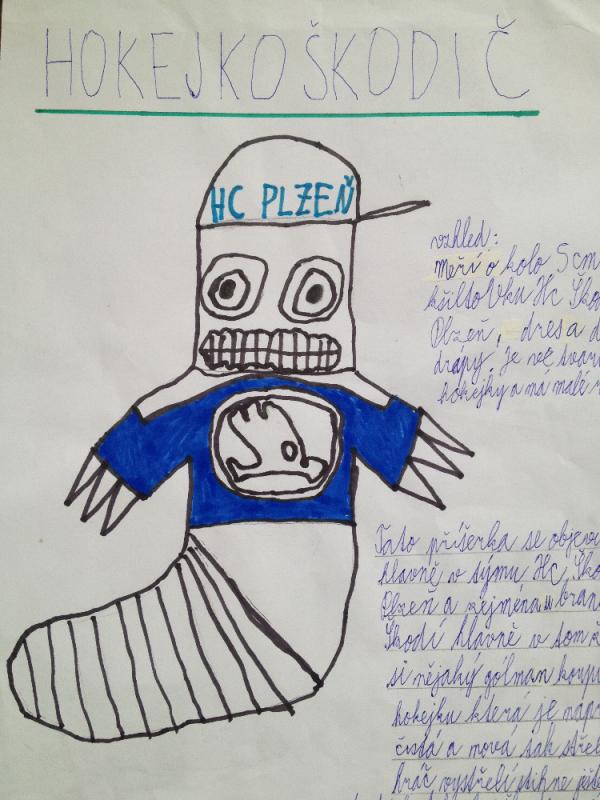 HOKEJKOŠKODIČ
HC PLZEŇ
vzhled:
Měří o kolo 5cm
kšiltovku Hc Ško
Plzeň, dres a d
drápy. Je ve tvaru
hokejky a má malé
Tato příšerka se objevu
hlavně v týmu Hc Ško
Plzeň a zejména u bran
Škodí hlavně v tom ž
si nějaký gólman koupí
hokejku která je napr
čistá a nová tak střel
hráč vystřelí stihne ješte